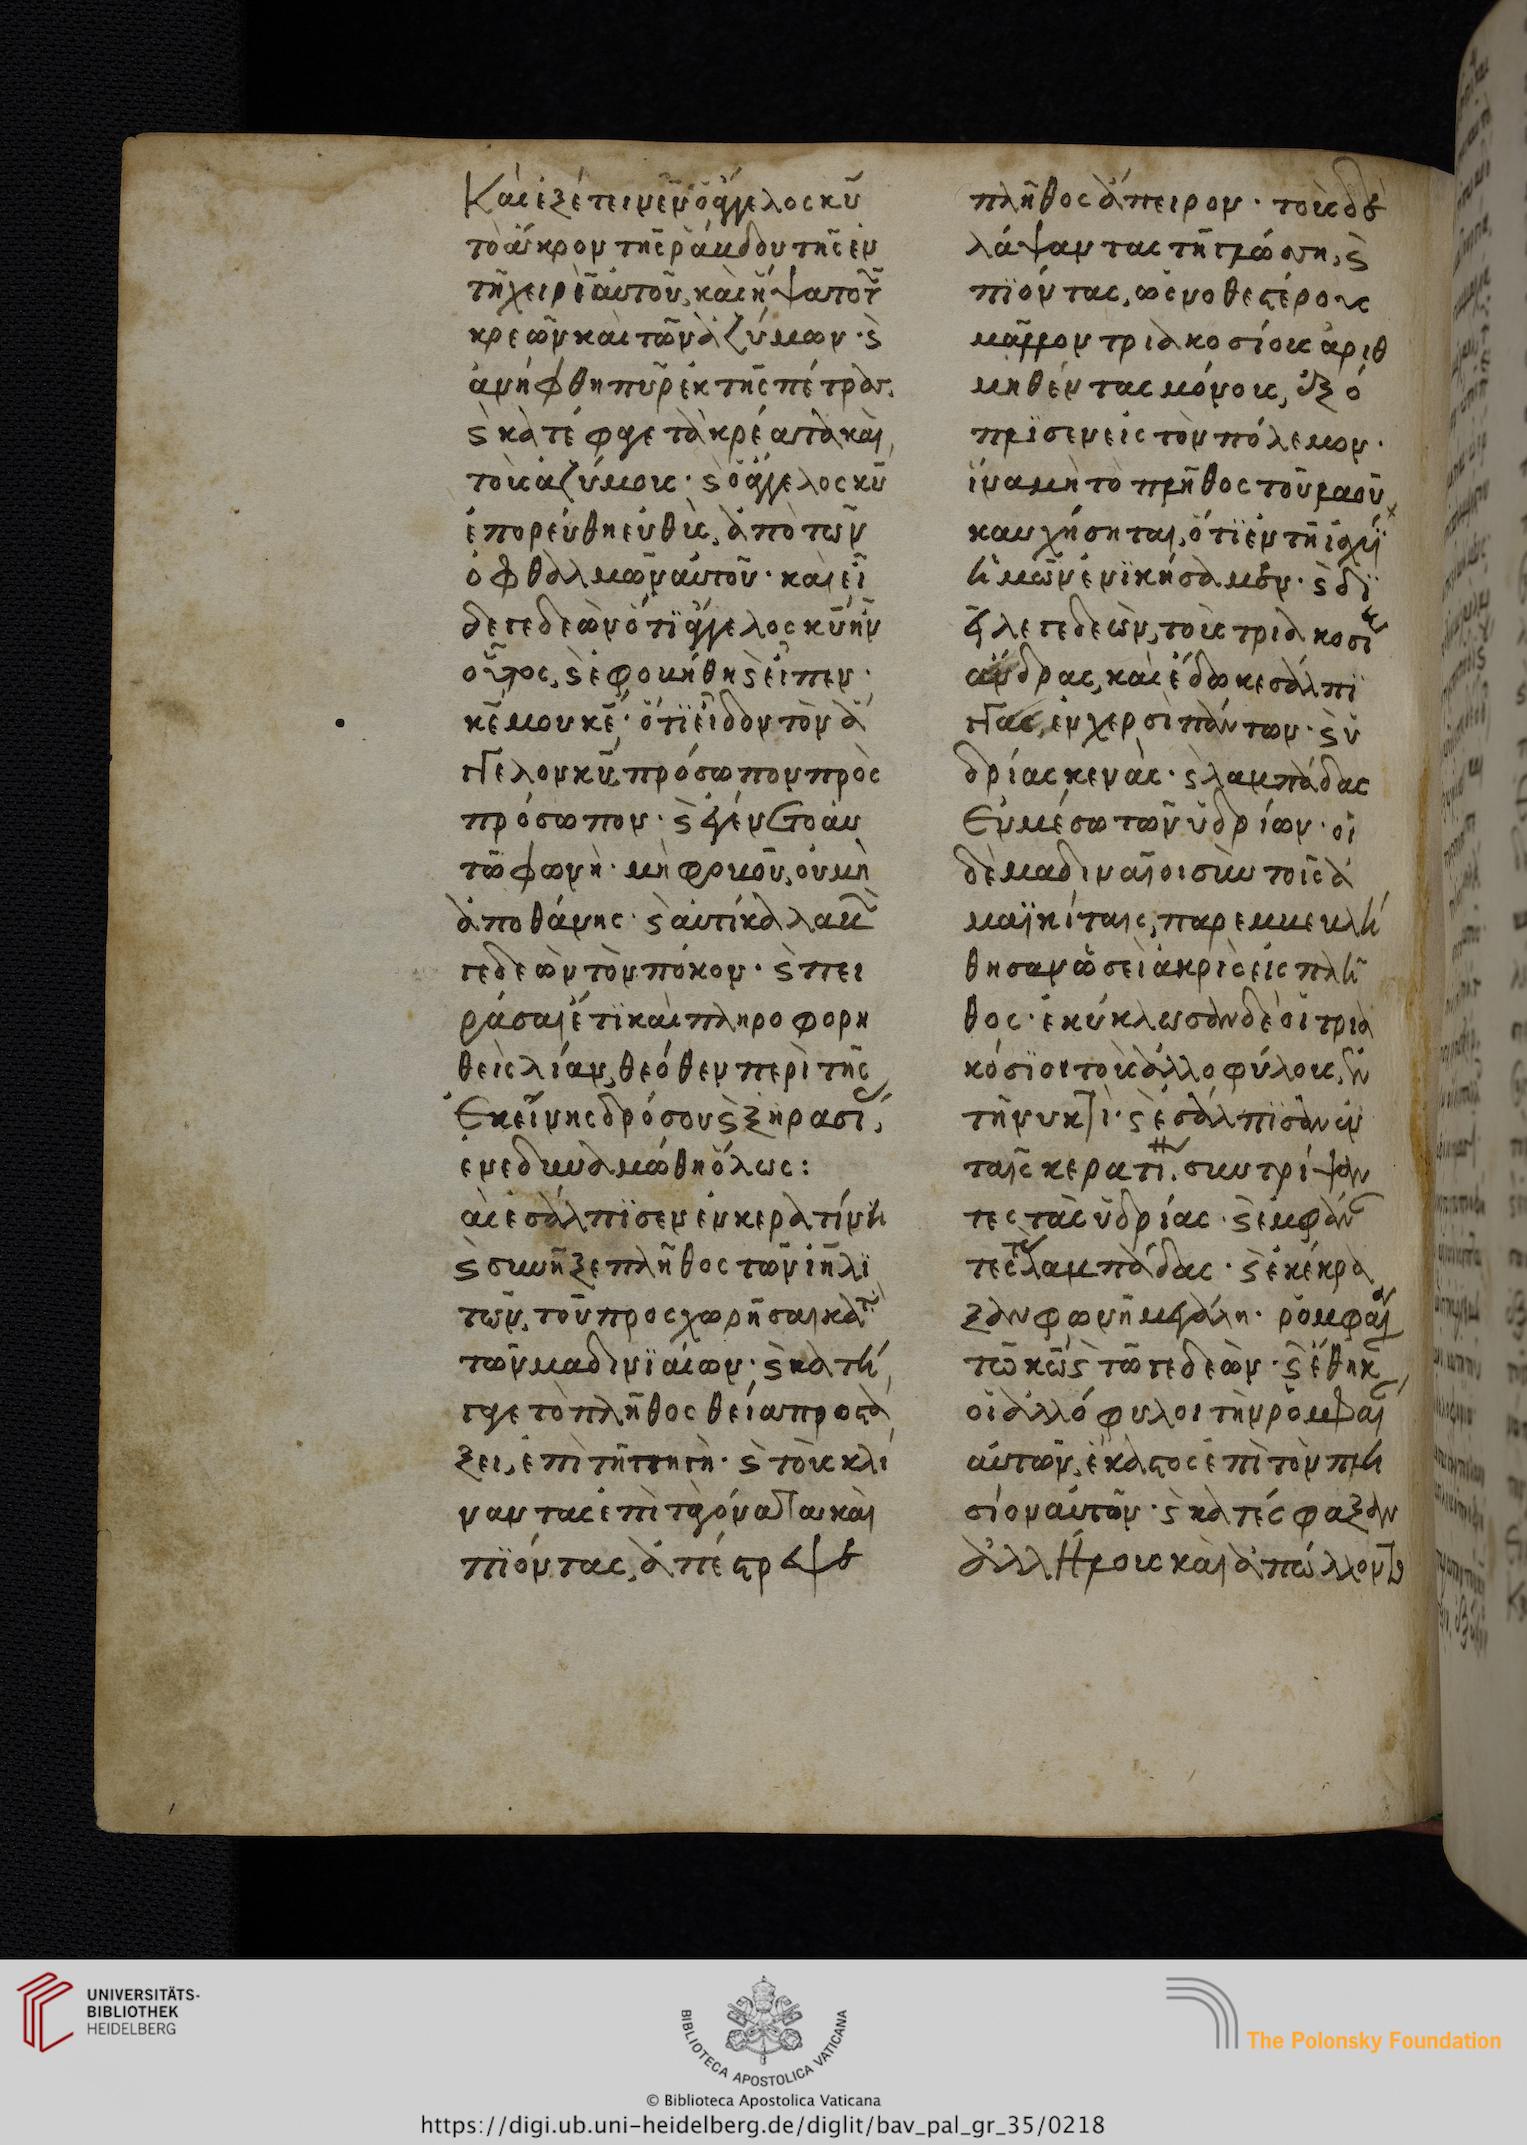 Καὶ ἐξέτεινεν ὁ ἄγγελος κυ
τὸ ἄκρον τῆς ῥάβδου τῆς ἐν
τῆ χειρὶ αὐτοῦ, καὶ ἥψατο τ
κρεῶν καὶ τῶν ἀζύμων · ϛ
ἀνήφθη πῦρ ἐκ τῆς πέτρας.
ϛ κατέφαγε τὰ κρέατα καὶ
τοὺς ἀζύμους · ϛ ὁ ἄγγελος κυ
ἐπορεύθη εὐθὺς, ἀπὸ τῶν
ὀφθαλμῶν αὐτοῦ · καὶ εἶ
δε γεδεὼν ὅτι ἄγγελος κυ ἦν
οὗτος, ϛ ἐφοβήθη ϛ εἶπεν ·
κε μου κε · ὅτι εἶδον τὸν ἄγ
γελον κυ, πρόσωπον πρὸς
πρόσωπον · ϛ ἐγένετο αὐ
τῶ φωνὴ · μὴ φοβοῦ, οὐ μὴ
ἀποθάνης · ϛ αὐτίκα λαβ
γεδεὼν τὸν πόκον · ϛ πει
ράσας ἔτι καὶ πληροφορη
θεὶς λίαν, θεόθεν περὶ τῆς
Ἐκείνης δρόσου ϛ ξηρασί,
ἐνεδυναμώθη ὅλως :
αὶ ἐσάλπισεν ἐν κερατίνη
ϛ συνῆξε πλῆθος τῶν ιηλι
τῶν, τοῦ προσχωρῆσαι κατ
τῶν μαδινιαίων · ϛ κατή
γαγε τὸ πλῆθος θεία προστά
ξει, ἐπὶ τῆ πηγῆ · ϛ τοὺς κλί
ναντας ἐπὶ τὰ γόνατα καὶ
πιόντας, ἀπέστρεψε
πλῆθος ἄπειρον · τοὺς δὲ
λάψαντας τῆ γλώσση, ϛ
πιόντας, ὡς νοθεστέρους
μᾶλλον τριακοσίους ἀριθ
μηθέντας μόνους, ἐξό
πλισεν εἰς τὸν πόλεμον ·
ἵνα μὴ τὸ πλῆθος τοῦ λαοῦ
καυχήσηται, ὅτι ἐν τῆ ἰσχύϊ
ἡμῶν ἐνικήσαμεν · ϛ δι
εῖλε γεδεὼν, τοὺς τριακοσί
ἄνδρας, καὶ ἔδωκε σάλπι
γγας, ἐν χερσὶ πάντων · ϛ ὑ
δρίας κενὰς · ϛ λαμπάδας
Ἐν μέσω τῶν ὑδρίων · οἱ
δὲ μαδιναῖοι σὺν τοῖς ἀ
μαληκίταις, παρεμβεβλή
θησαν ὡσεὶ ἀκρὶς εἰς πλῆ
θος · ἐκύκλωσαν δὲ οἱ τρια
κόσιοι τοὺς ἀλλοφύλους, ἐν
τῆ νυκτὶ · ϛ ἐσάλπισαν ἐν
ταῖς κερατί. συντρίψαν
τες τὰς ὑδρίας · ϛ ἐμφάν
τες τ λαμπάδας · ϛ ἐκέκρα
ξαν φωνῆ μεγάλη · ῥομφαία
τῶ κω ϛ τῶ γεδεὼν · ϛ ἔθηκ
οἱ ἀλλόφυλοι τὴν ῥομφαί
αὐτῶν, ἕκαστος ἐπὶ τὸν πλη
σίον αὐτῶν · ϛ κατέσφαξαν
ἀλλήλους καὶ ἀπώλλοντο
UNIVERSITÄTS-
BIBLIOTHEK
HEIDELBERG
BIBLIOTECA APOSTOLICA VATICANA
The Polonsky Foundation
© Biblioteca Apostolica Vaticana
https://digi.ub.uni-heidelberg.de/diglit/bav_pal_gr_35/0218